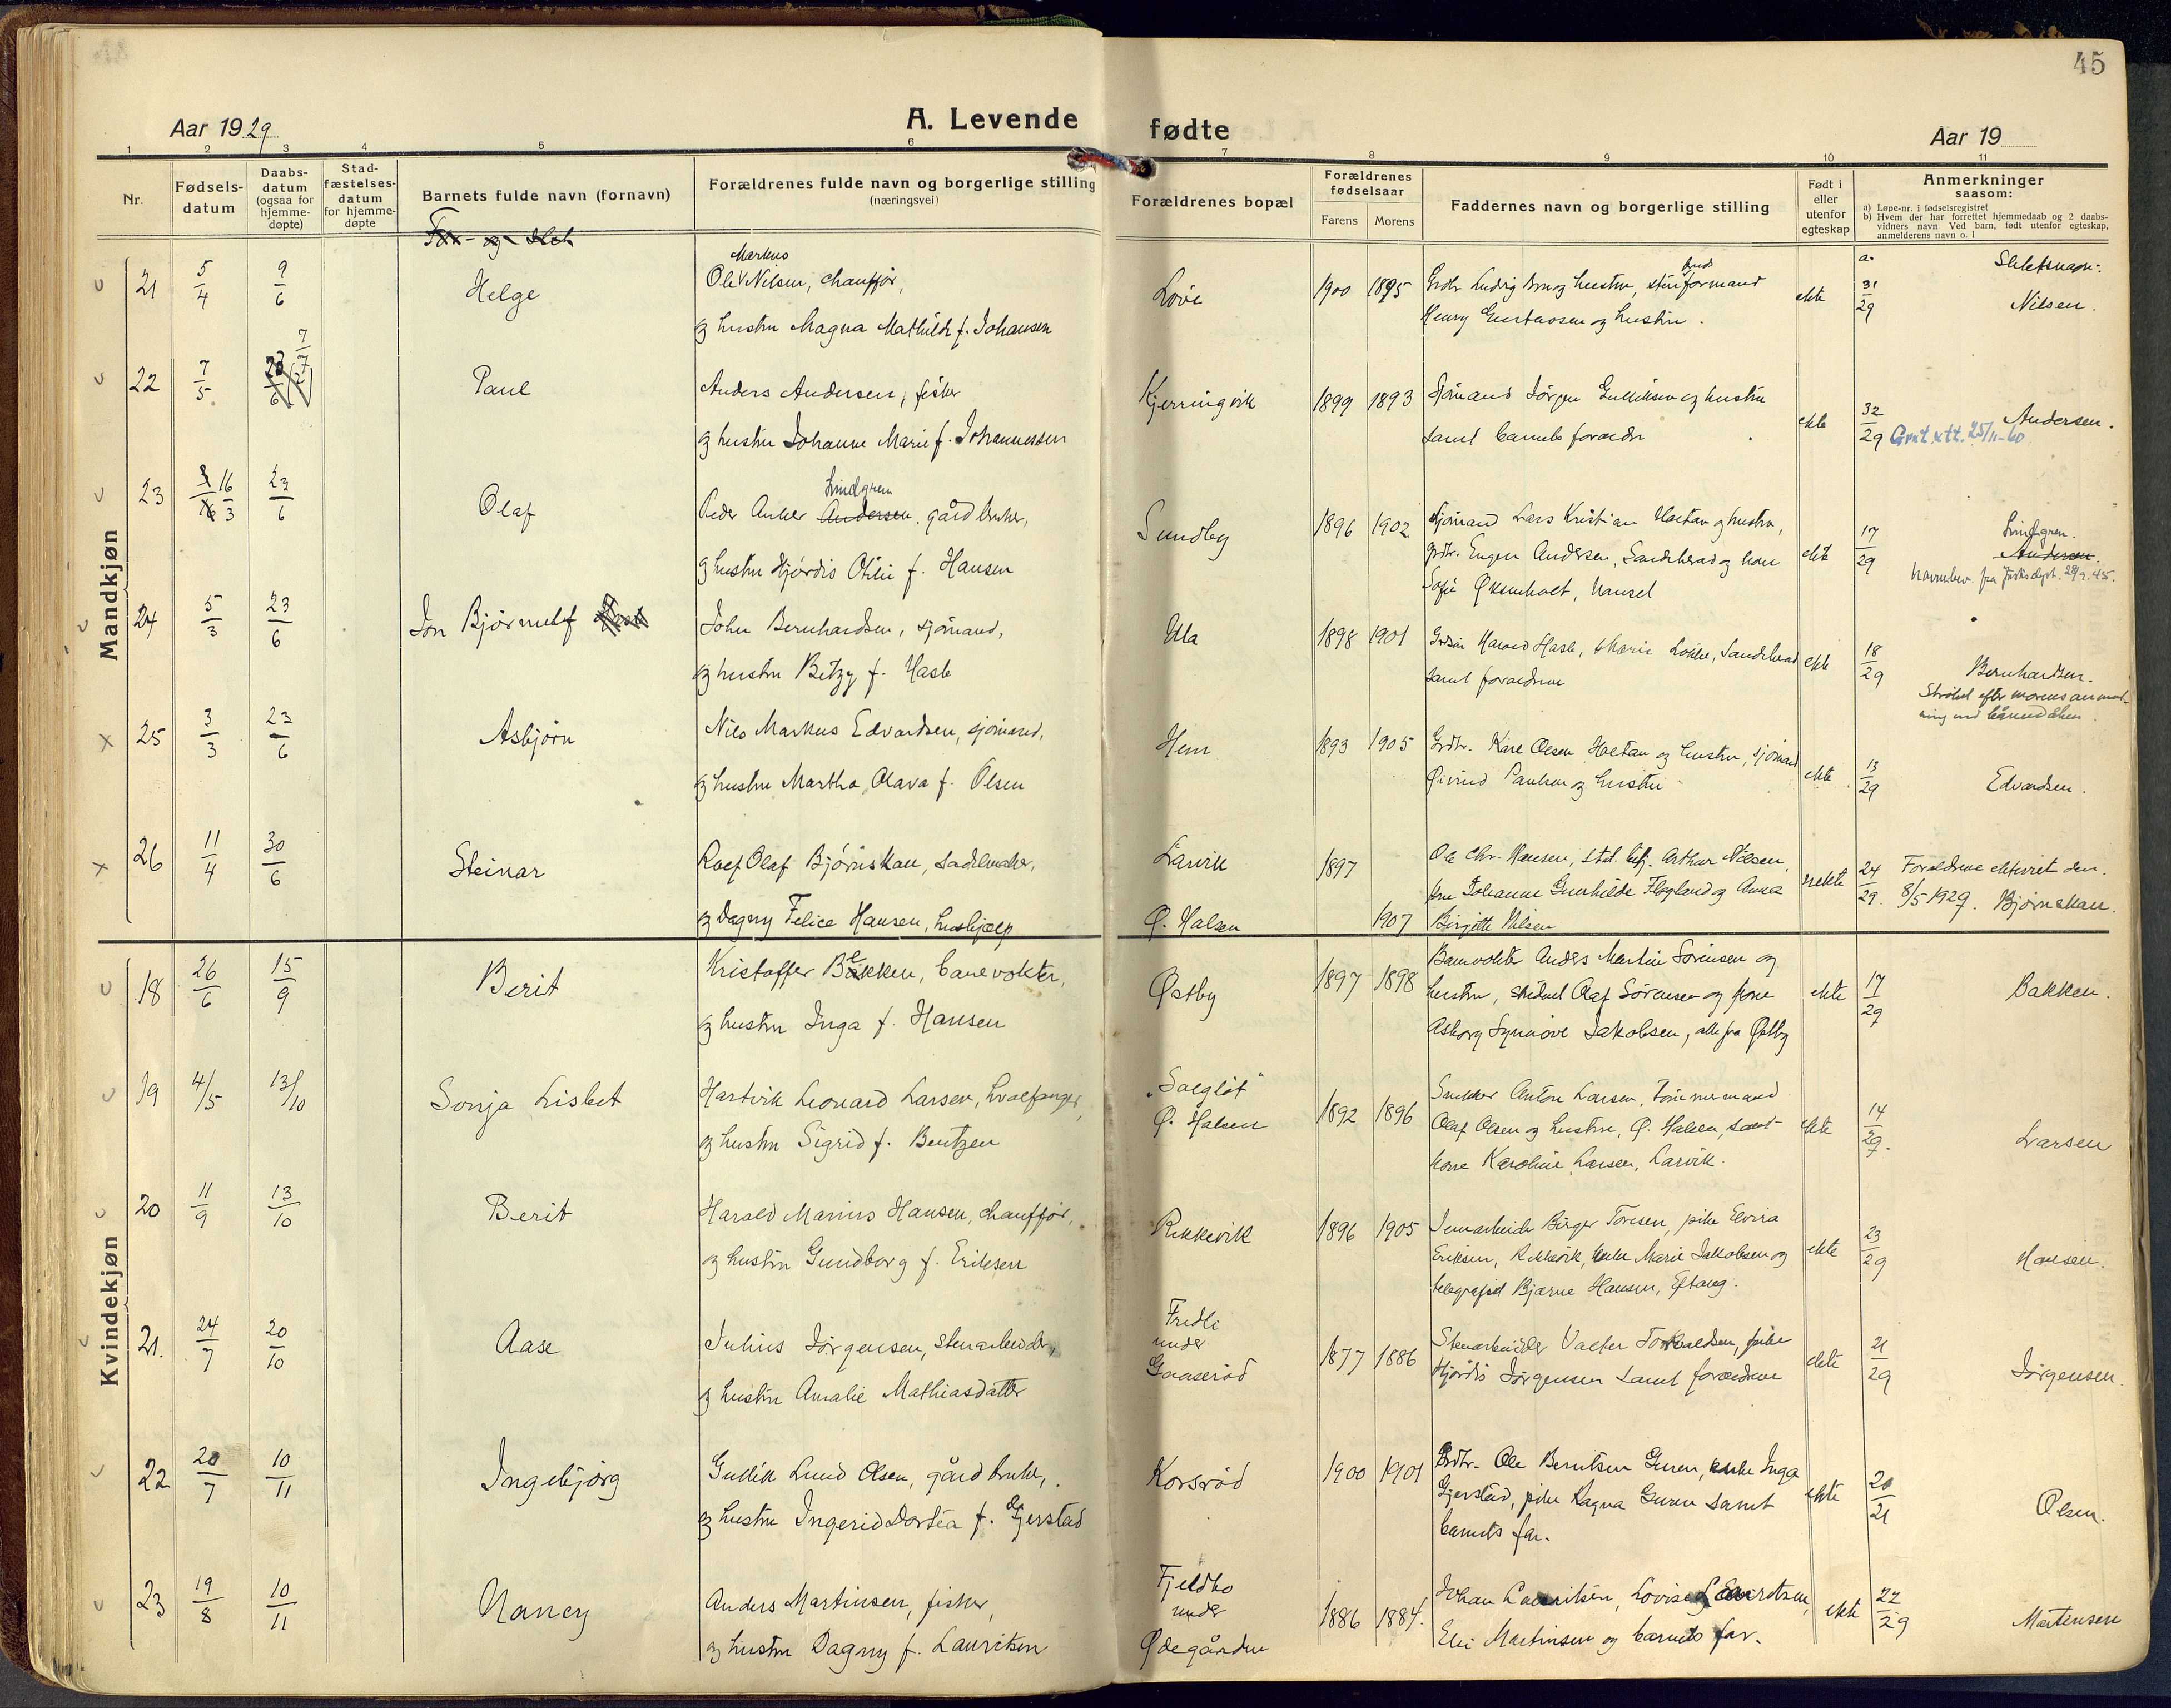 45
Aar 1929
A. Levende fødte
Aar 19
1 2 3 4 5 6 7 8 9 10 11
Nr.
Fødsels-
datum
Daabs-
datum
(ogsaa for
hjemme-
døpte)
Stad-
fæstelses-
datum
for hjemme-
døpte
Barnets fulde navn (fornavn)
Forældrenes fulde navn og borgerlige stilling
(næringsvei)
Forældrenes bopæl
Forældrenes
fødselsaar
Farens Morens
Faddernes navn og borgerlige stilling
Født i
eller
utenfor
egteskap
Anmerkninger
saasom:
a) Løpe-nr. i fødselsregistret
b) Hvem der har forrettet hjemmedaab og 2 daabs-
vidners navn Ved barn, født utenfor egteskap,
anmelderens navn o. l
Mandkjøn
21 5/4 9/6 Helge
Markus
Ole Nilsen, chauffør,
og hustru Magna Mathilde f. Johansen
Love 1900 1895
Henry Gustavsen og hustru.
ekte
a.
31/29
Slektsnavn:
Nilsen.
22 7/5 7/7 Paul
Anders Andersen, fisker
og hustru Johanne Marie f. Johannessen
Kjerringvik 1899 1893
Sjømand Jørgen Gulliksen og hustru
samt barnets forældre
ekte
32/29
Andersen.
25/11-60
23 16/3 23/6 Olaf
Lindgren
Peder Anker Andersen, gårdbruker,
og hustru Hjørdis Otilie f. Hansen
Sundby 1896 1902
Sjømand Lars Kristian Haetan og hustru,
grdbr. Eugen Andersen, Sandeherad og kone
Sofie Øksenholt, Nanset
ekte
17/29
Lindgren.
Andersen.
24 5/3 23/6 Jon Bjørnulf
John Bernhardsen, sjømand,
og hustru Betzy f. Hasle
Ula 1898 1901
samt forældrene
ekte
18/29
Bernhardsen.
Strøket efter morens anmod-
ning ved barnedåben.
25 3/3 23/6 Asbjørn
Nils Markus Edvardsen, sjømand,
og hustru Martha Olava f. Olsen
Hem 1893 1905
Grdbr. Kåre Olsen Haetan og hustru, sjømand
Øivind Paulsen og hustru
ekte
13/29
Edvardsen.
26 11/4 30/6 Steinar
Rolf Olaf Bjørnskau, sadelmaker,
og Dagny Felice Hansen, hushjælp
Larvik 1897
Ø. Halsen 1907
Ole Chr. Hansen, Arthur Nilsen,
fru Johanne Gunhilde Fløgland og Anna
Birgitte Nilsen
uekte
24/29.
Forældrene ekteviet den.
8/5-1929. Bjørnskau.
Kvindekjøn
18 26/6 15/9 Berit
Kristoffer Bakken, banevokter,
og hustru Inga f. Hansen
Østby 1897 1898
Banevokter Anders Martin Sørensen og
hustru, student Olaf Sørensen og frøken
Asborg Synnøve Jakobsen, alle fra Østby
ekte
17/29
Bakken.
19 4/5 13/10 Sonja Lisbet
Hartvik Leonard Larsen, hvalfanger,
og hustru Sigrid f. Bentzen
"Solgløt"
Ø. Halsen 1892 1896
Snekker Anton Larsen, tømmermand
Olaf Olsen og hustru, Ø. Halsen, samt
kone Karoline Larsen, Larvik.
ekte
14/29.
Larsen
20 11/9 13/10 Berit
Harald Marius Hansen, chauffør,
og hustru Gundborg f. Eriksen
Rekkevik 1896 1905
Jernarbeider Birger Toresen, pike Elvira
Eriksen, Rekkevik, enke Marie Jakobsen og
telegrafist Bjarne Hansen, Eftang.
ekte
23/29
Hansen.
21. 24/7 20/10 Aase
Julius Jørgensen, stenarbeider,
og hustru Amalie Mathiasdatter
Fredli
under
Gaaserød 1877 1886
Stenarbeider Valter Torvaldsen, pike
Hjørdis Jørgensen samt forældrene
ekte
21/29
Jørgensen.
22 20/7 10/11 Ingebjørg
Gullik Lund Olsen, gårdbruker,
og hustru Ingerid Dortea f. Gjerstad
Korsrød 1900 1901
Grdbr. Ole Berntsen Guren, enke Inga
Gjerstad, pike Ragna Guren samt
barnets far.
ekte
20/21
Olsen.
23 19/8 10/11 Nancy
Anders Martinsen, fisker,
og hustru Dagny f. Lauritsen
Fjeldbo
under
Ødegården 1886 1884.
Johan Lauritsen, Lovise Lauritsen,
Elie Martinsen og barnets far.
ekte
22/29
Martinsen